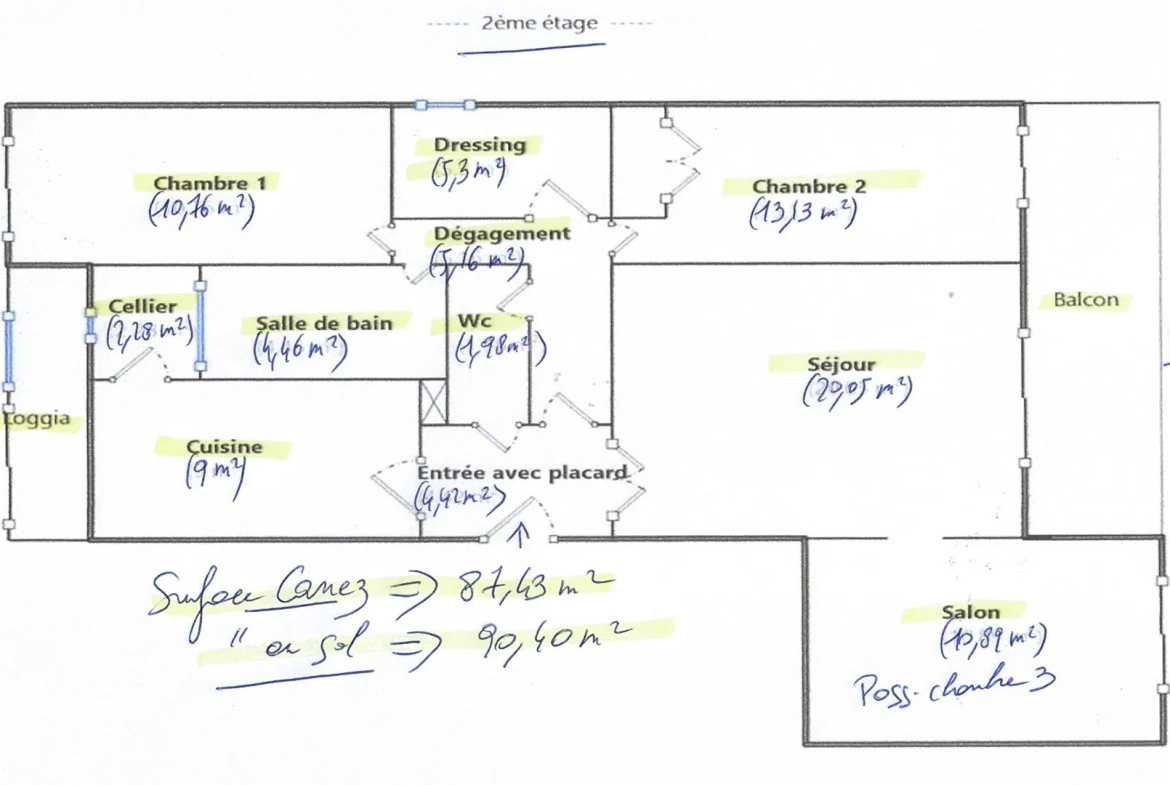 2ème étage
Dressing
(5,3 m²)
Chambre 1
(10,76 m²)
Chambre 2
(13,13 m²)
Dégagement
(5,16 m²)
Balcon
Cellier
(2,28 m²)
Salle de bain
(4,46 m²)
Wc
(1,98 m²)
Séjour
(20,05 m²)
Loggia
Cuisine
(9 m²)
Entrée avec placard
(4,42 m²)
Surface Carrez => 87,43 m²
" au sol => 90,40 m²
Salon
(10,89 m²)
Poss. chambre 3